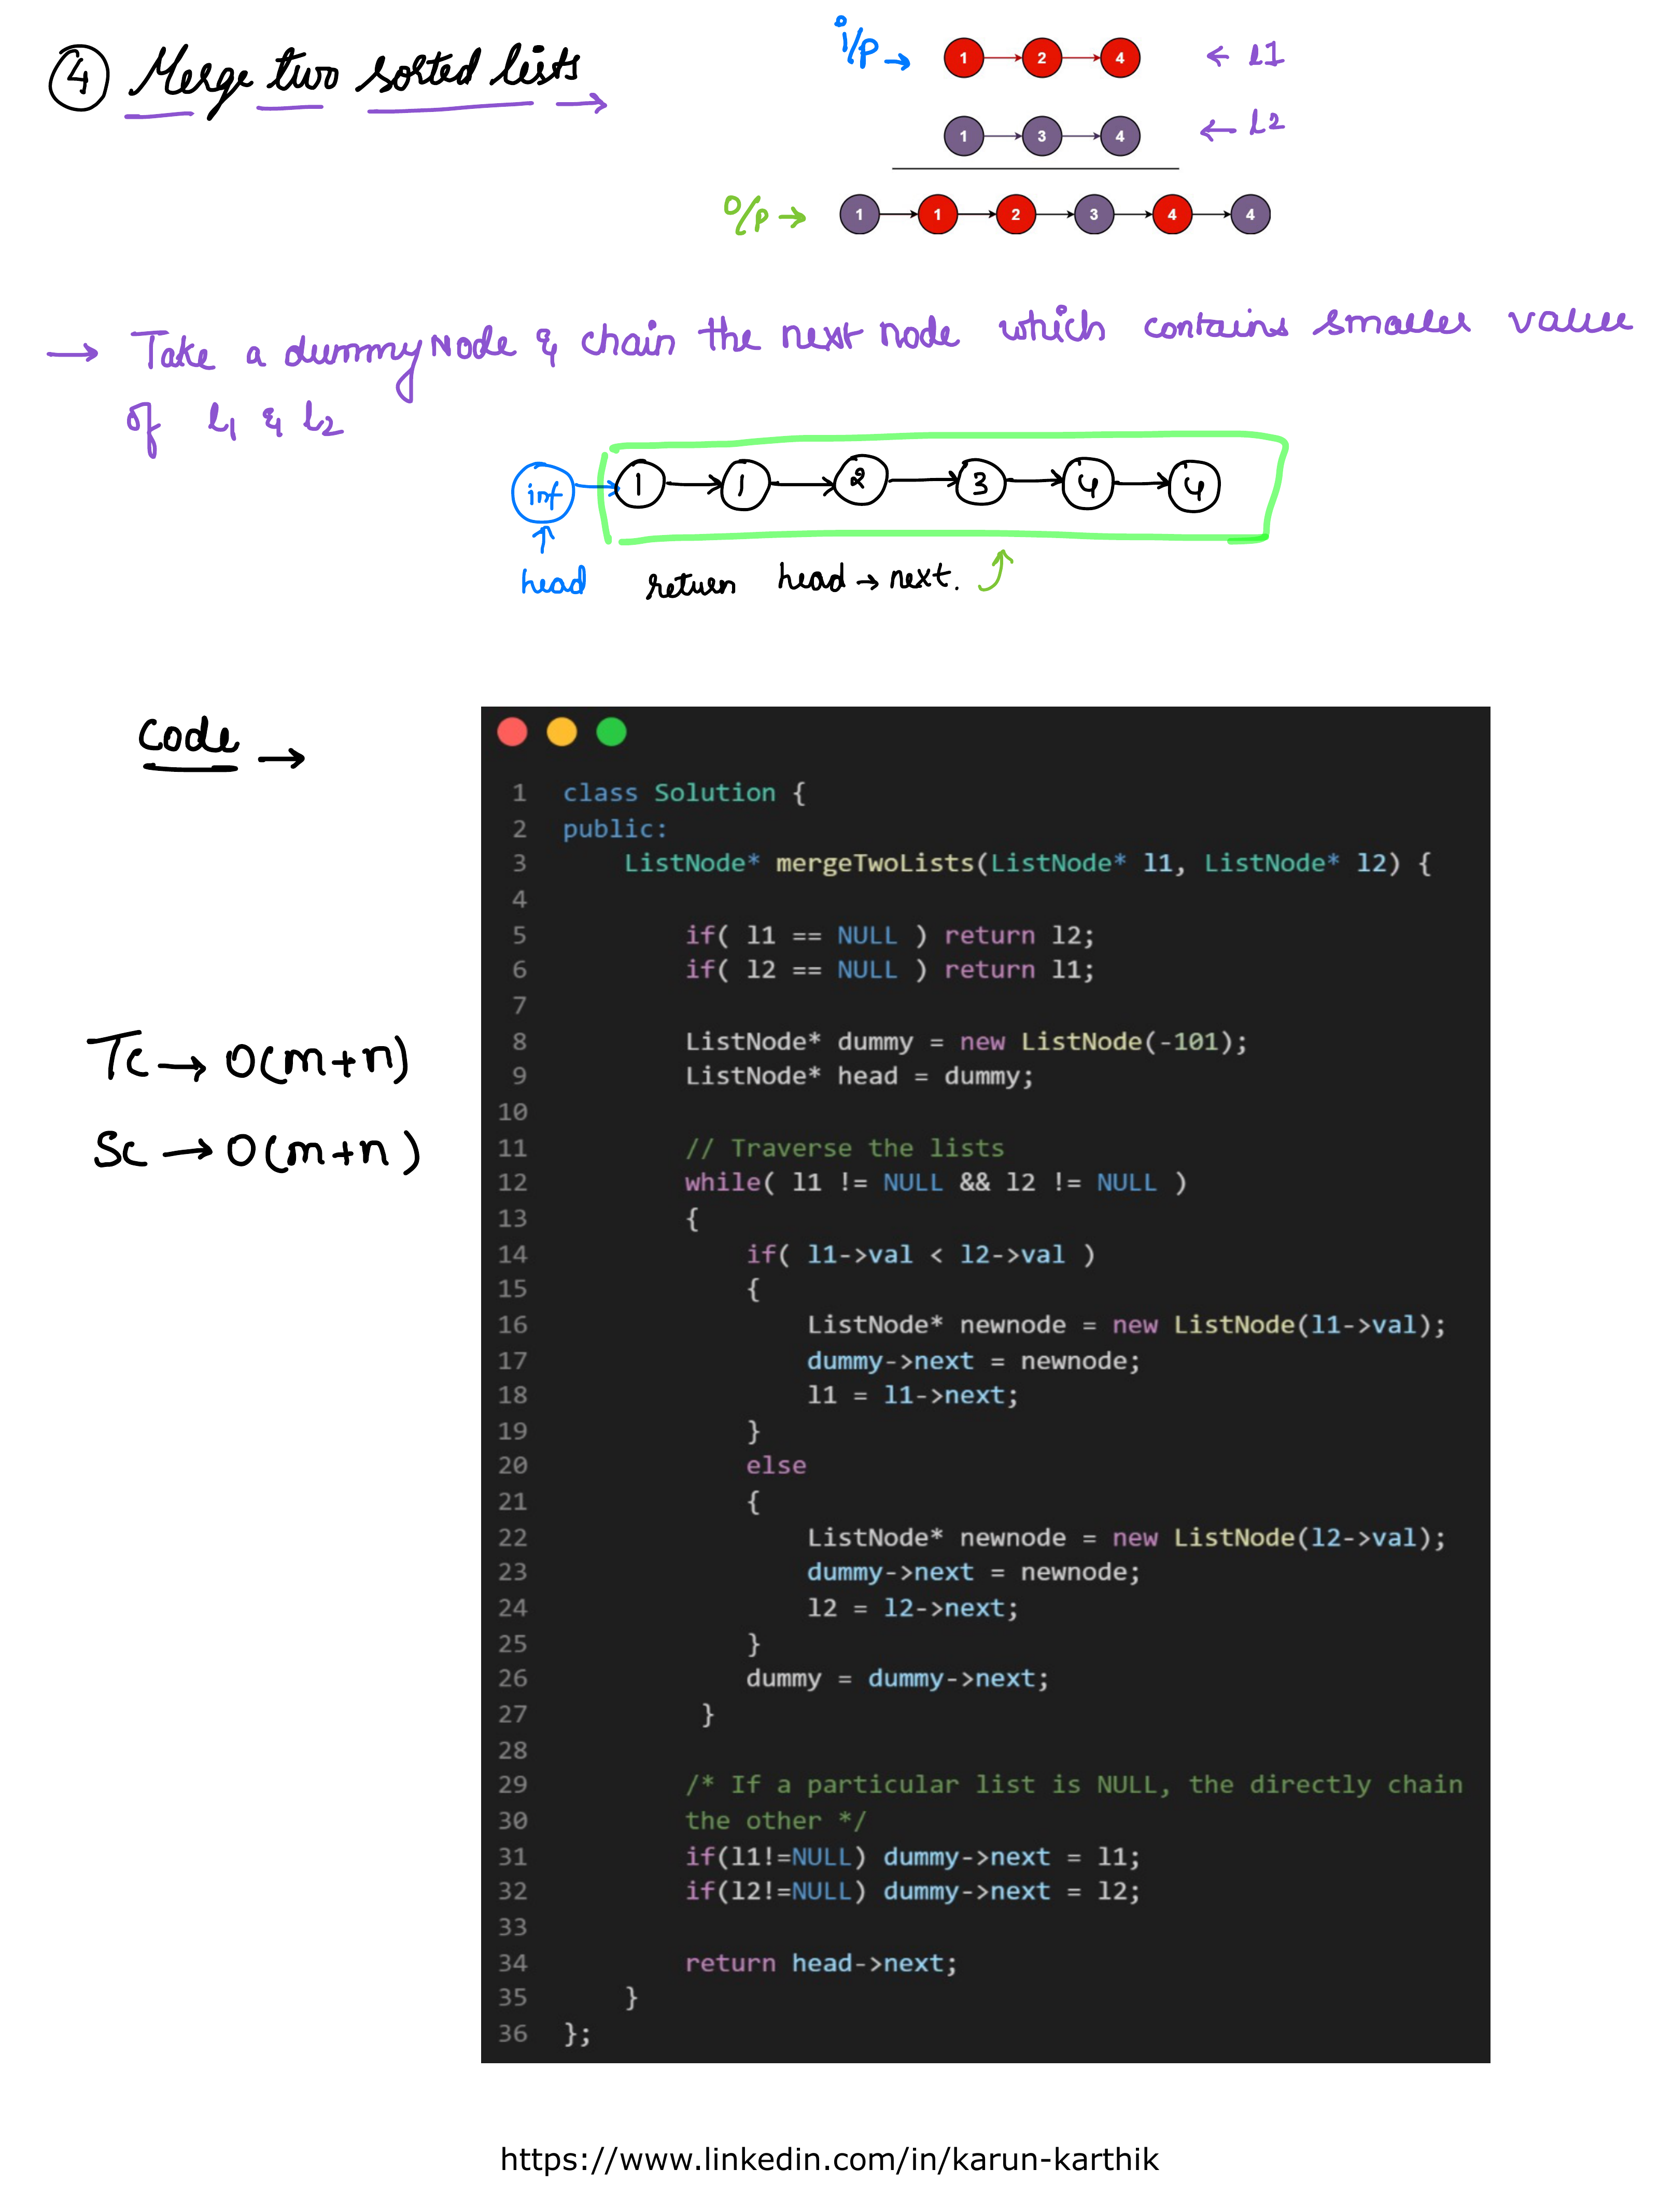 4 Merge two sorted lists
i/p → 1 2 4 ← l1
1 3 4 ← l2
O/p → 1 1 2 3 4 4
→ Take a dummy Node & chain the next node which contains smaller value
of l1 & l2
inf 1 1 2 3 4 4
head return head → next.
Code →
TC → O(m+n)
SC → O(m+n)
1 class Solution {
2 public:
3     ListNode* mergeTwoLists(ListNode* l1, ListNode* l2) {
4
5         if( l1 == NULL ) return l2;
6         if( l2 == NULL ) return l1;
7
8         ListNode* dummy = new ListNode(-101);
9         ListNode* head = dummy;
10
11         // Traverse the lists
12         while( l1 != NULL && l2 != NULL )
13         {
14             if( l1->val < l2->val )
15             {
16                 ListNode* newnode = new ListNode(l1->val);
17                 dummy->next = newnode;
18                 l1 = l1->next;
19             }
20             else
21             {
22                 ListNode* newnode = new ListNode(l2->val);
23                 dummy->next = newnode;
24                 l2 = l2->next;
25             }
26             dummy = dummy->next;
27          }
28
29         /* If a particular list is NULL, the directly chain
30         the other */
31         if(l1!=NULL) dummy->next = l1;
32         if(l2!=NULL) dummy->next = l2;
33
34         return head->next;
35     }
36 };
https://www.linkedin.com/in/karun-karthik